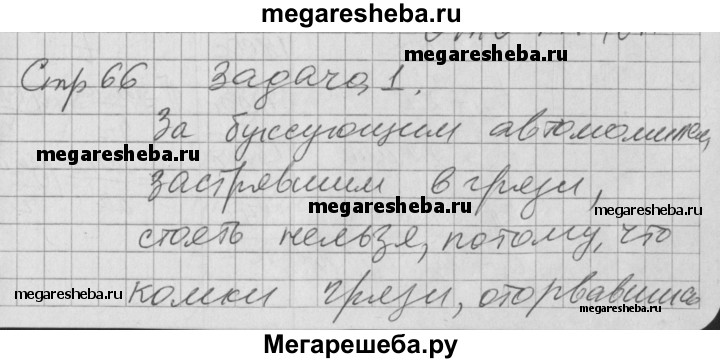 megaresheba.ru
Стр 66 Задача 1.
За буксующим автомомилем,
megaresheba.ru
застрявшим в грязи,
megaresheba.ru megaresheba.ru
стоять нельзя, потому, что
megaresheba.ru комки грязи, оторвавшись
megaresheba.ru
Мегарешеба.ру